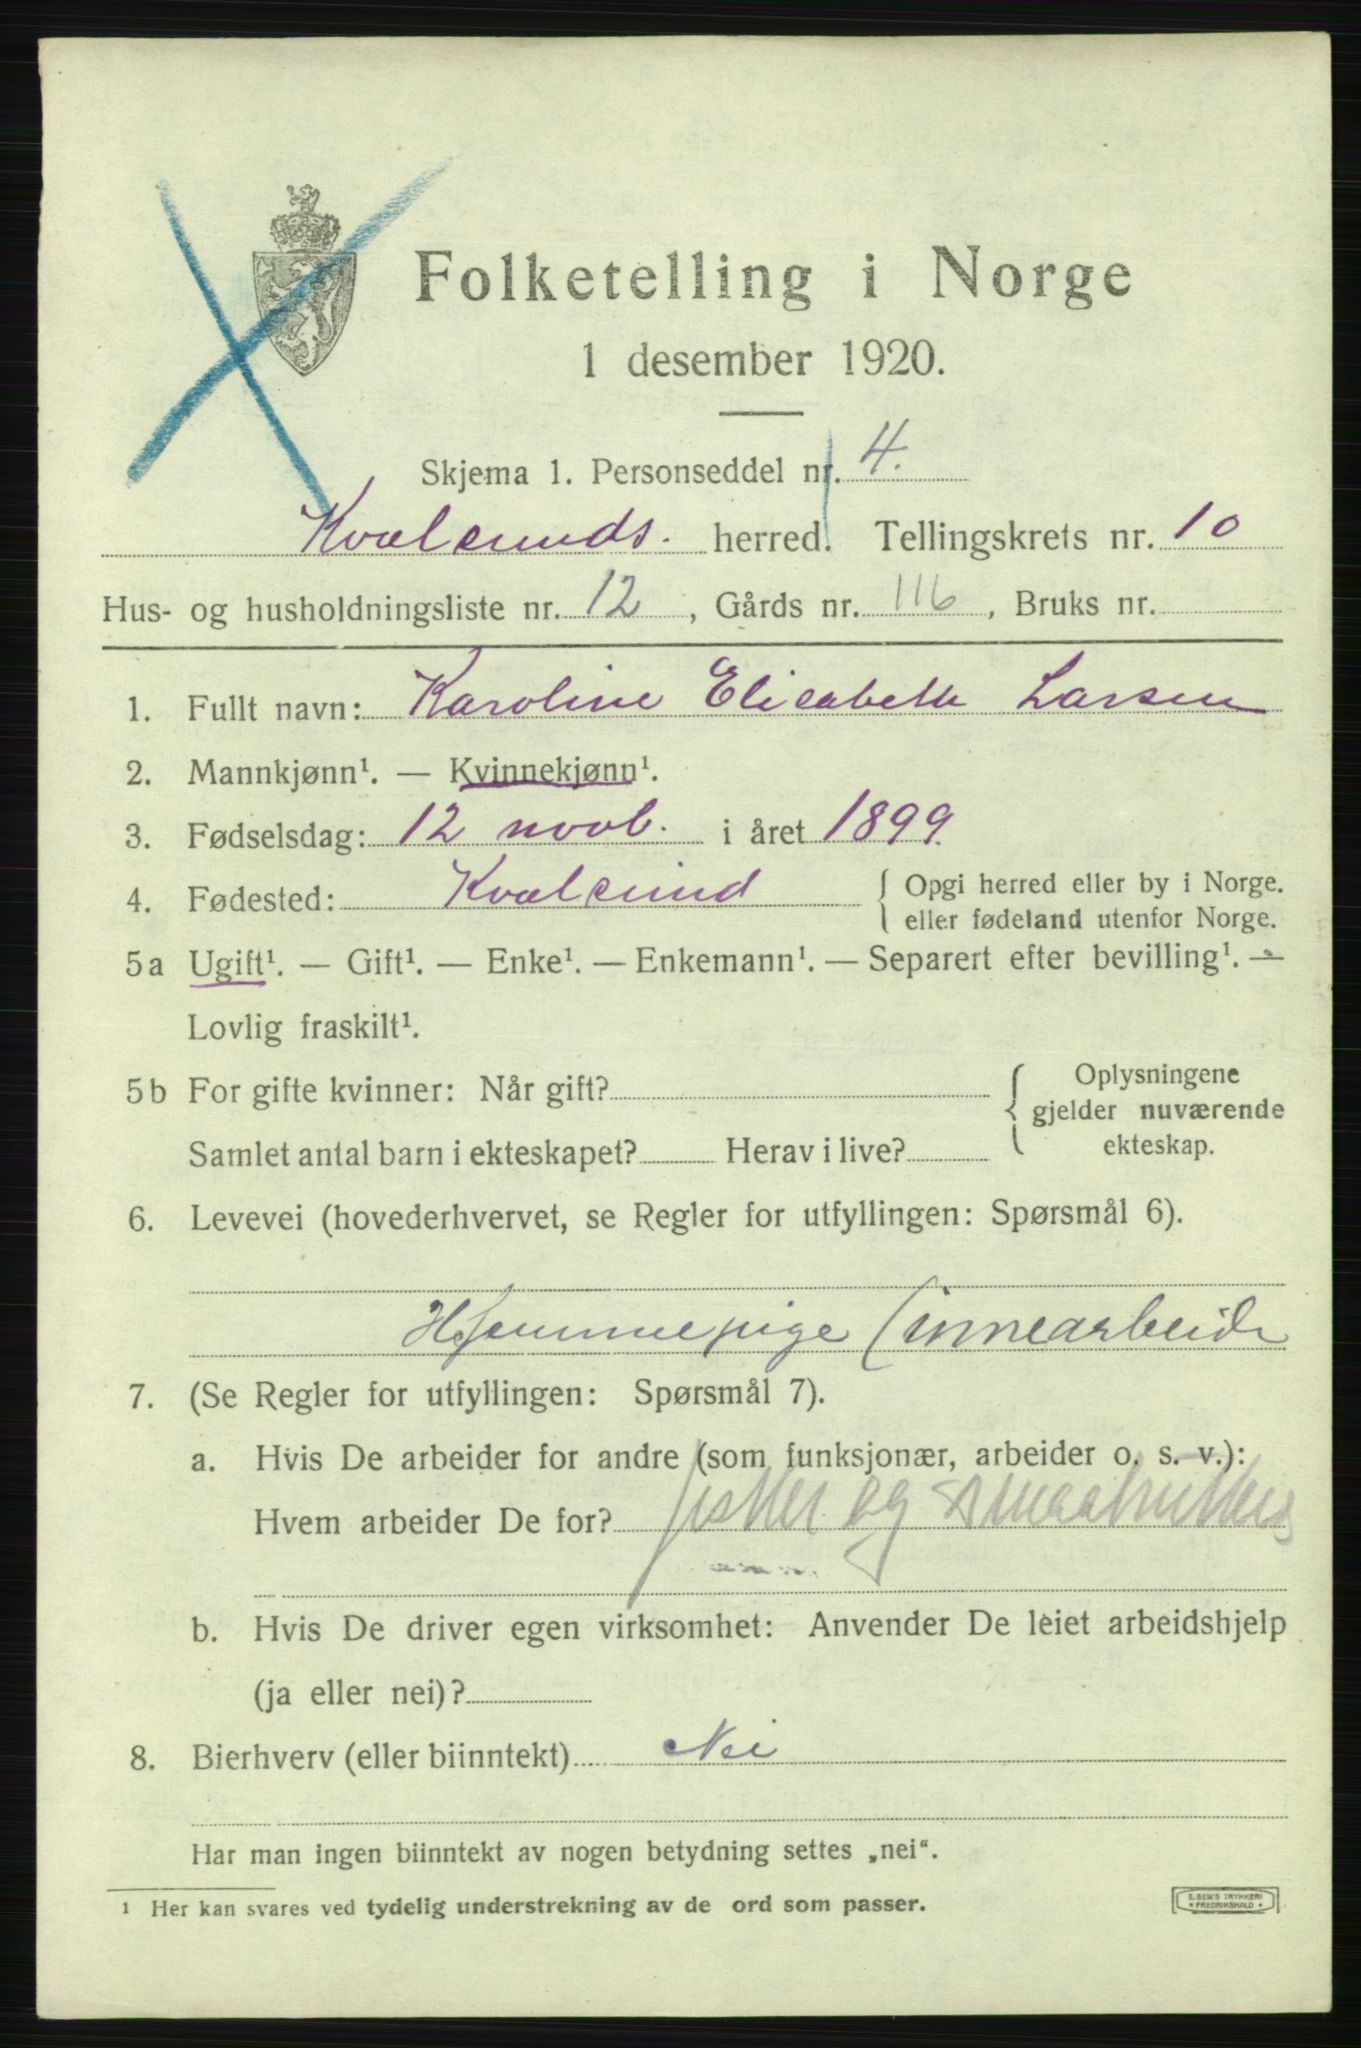 Folketelling i Norge
1 desember 1920.
Skjema 1. Personseddel nr. 4.
Kvalsunds. herred. Tellingskrets nr. 10
Hus- og husholdningsliste nr. 12, Gårds nr. 116, Bruks nr.
1. Fullt navn: Karoline Elisabeth Larsen
2. Mannkjønn¹. — Kvinnekjønn¹.
3. Fødselsdag: 12 novb. i året 1899.
4. Fødested: Kvalsund { Opgi herred eller by i Norge.
eller fødeland utenfor Norge.
5a Ugift¹. — Gift¹. — Enke¹. — Enkemann¹. — Separert efter bevilling¹. —
Lovlig fraskilt¹.
5b For gifte kvinner: Når gift? { Oplysningene
gjelder nuværende
Samlet antal barn i ekteskapet? Herav i live? ekteskap.
6. Levevei (hovederhvervet, se Regler for utfyllingen: Spørsmål 6).
Hjemmepige (innearbeide
7. (Se Regler for utfyllingen: Spørsmål 7).
a. Hvis De arbeider for andre (som funksjonær, arbeider o. s. v.):
Hvem arbeider De for? fisker og smaabruker
b. Hvis De driver egen virksomhet: Anvender De leiet arbeidshjelp
(ja eller nei)?
8. Bierhverv (eller biinntekt) Nei
Har man ingen biinntekt av nogen betydning settes „nei“.
¹ Her kan svares ved tydelig understrekning av de ord som passer.
E. SEM'S TRYKKERI
FREDRIKSHALD